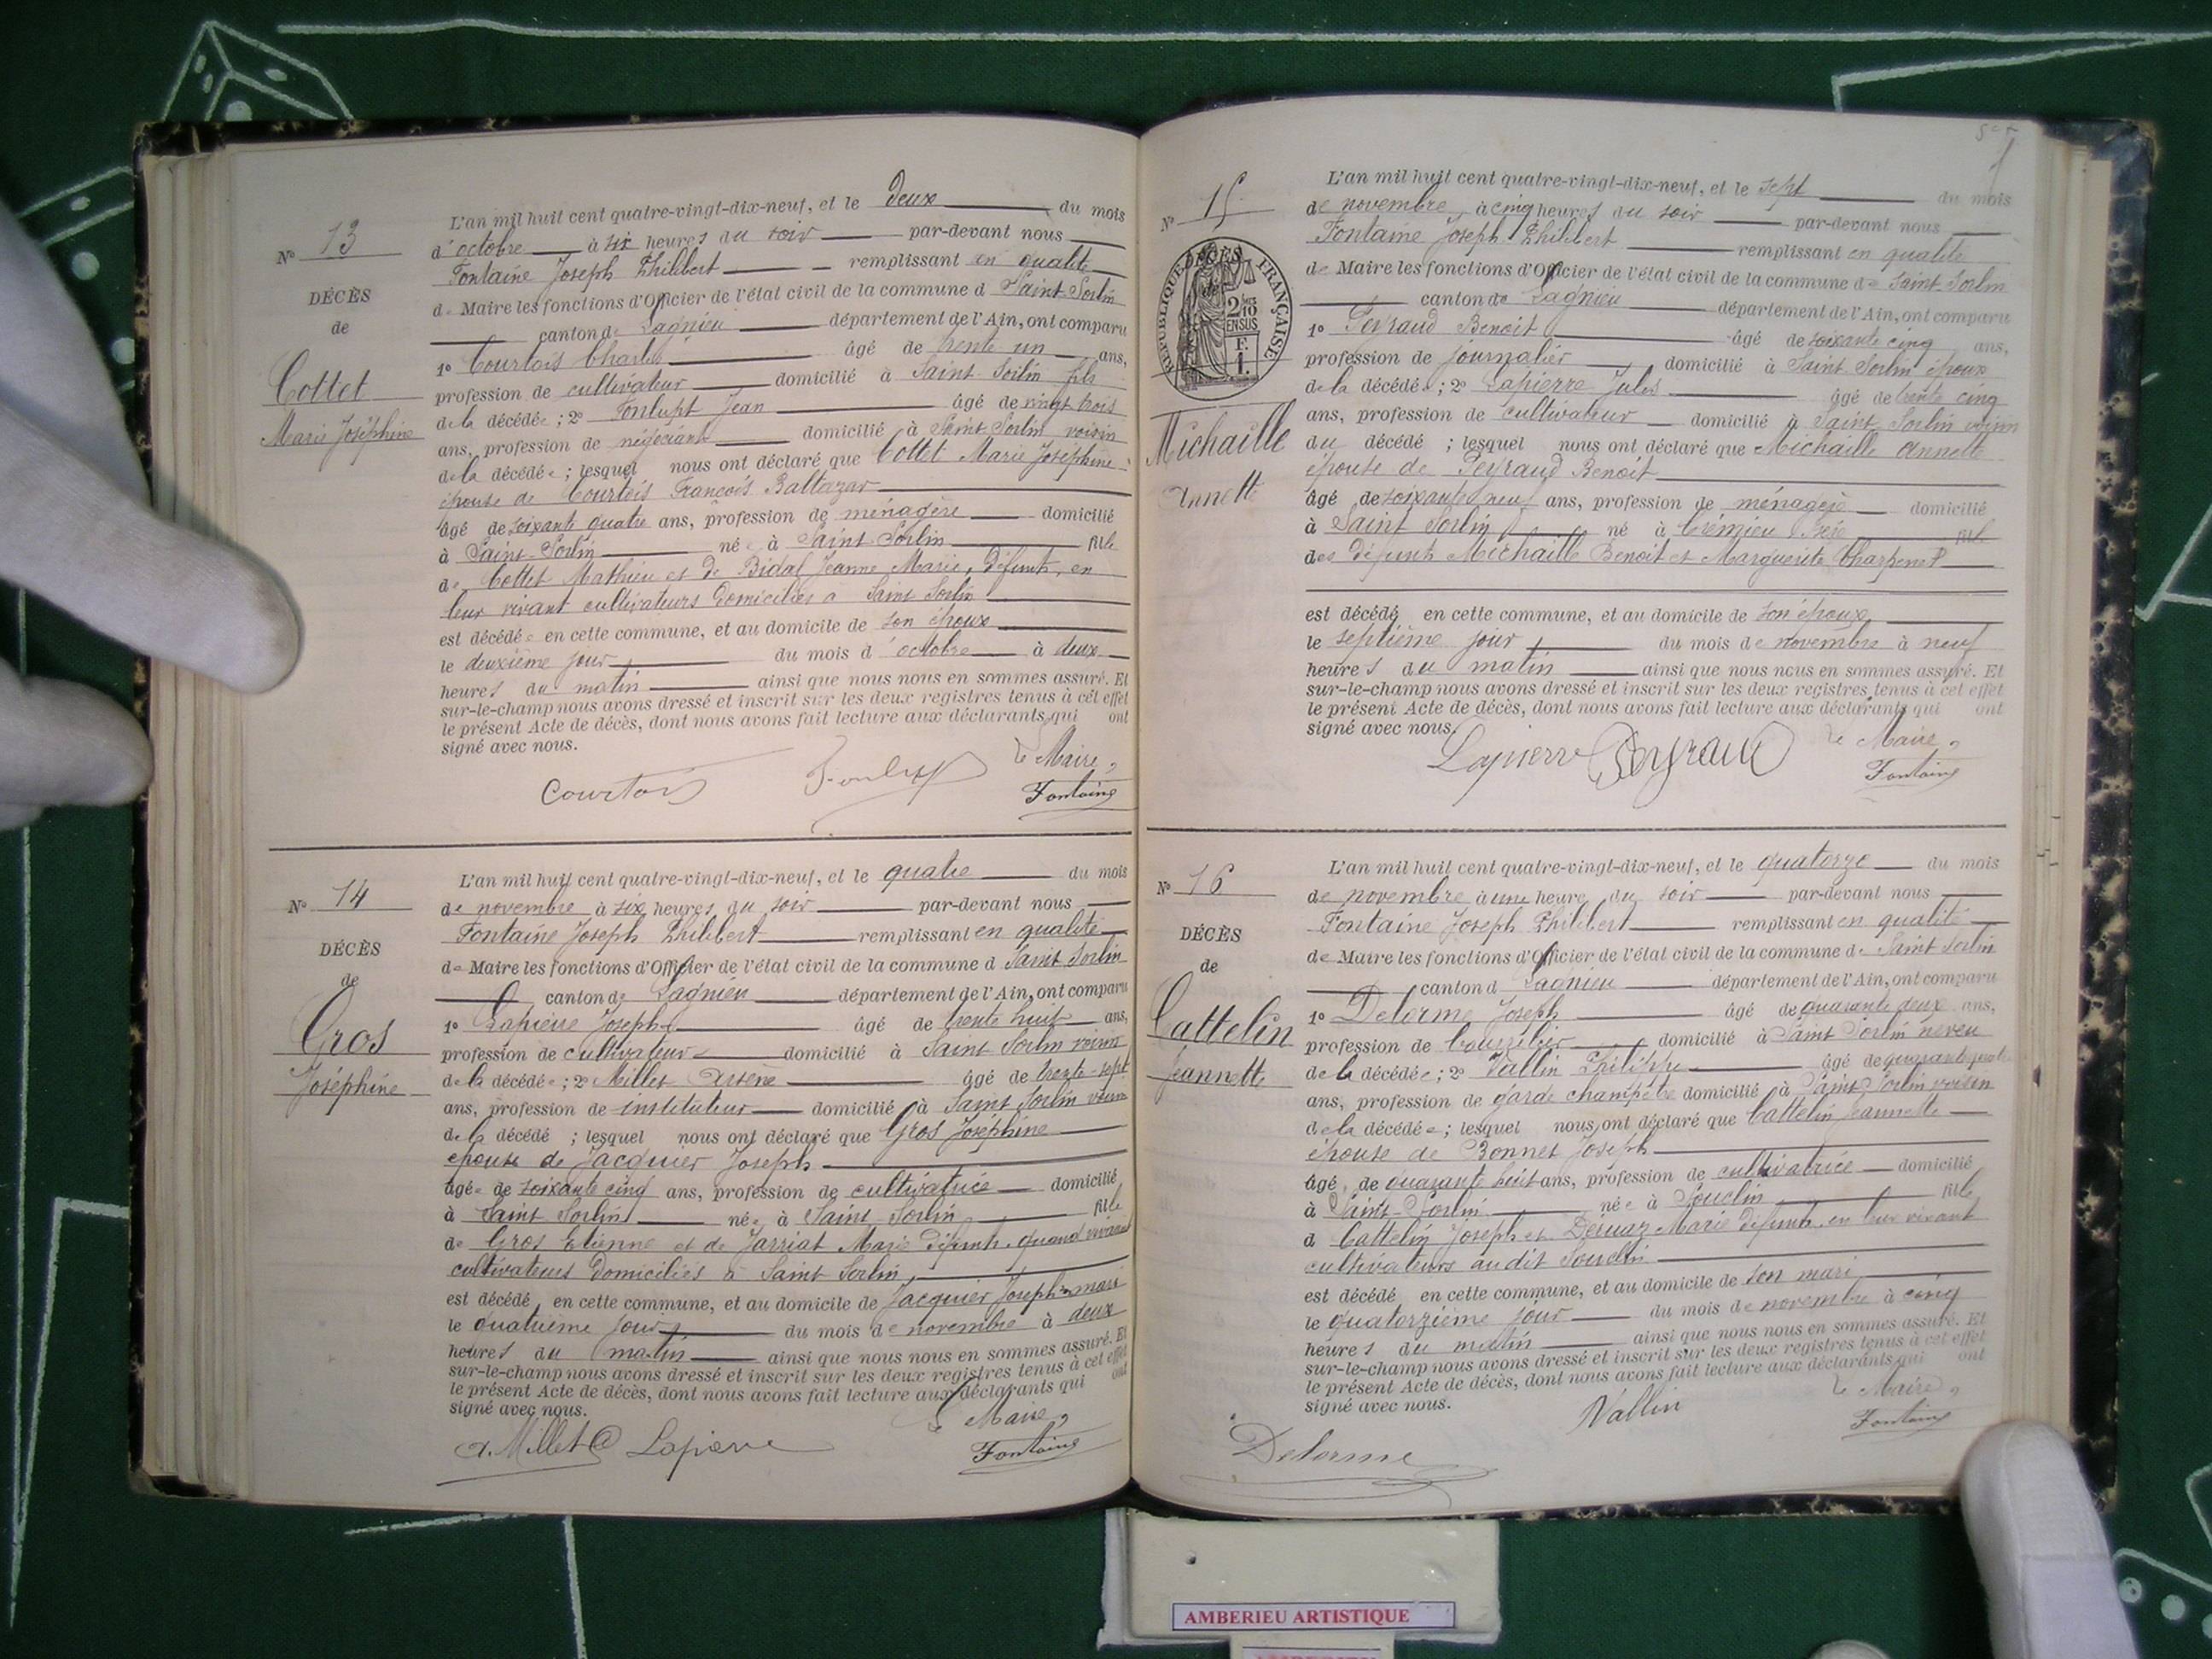 N° 13
DÉCÈS
de
Cottet
Marie Joséphine
L'an mil huit cent quatre-vingt-dix-neuf, et le deux du mois
d'octobre à six heures du soir par-devant nous
Fontaine Joseph Philibert remplissant en qualité
de Maire les fonctions d'Officier de l'état civil de la commune d Saint Sorlin
canton de Lagnieu département de l'Ain, ont comparu
1° Courtois Charles âgé de trente un ans,
profession de cultivateur domicilié à Saint-Sorlin fils
de la décédée; 2° Fonlupt Jean âgé de vingt trois
ans, profession de négociant domicilié à Saint Sorlin voisin
de la décédée; lesquel nous ont déclaré que Cottet Marie Joséphine
épouse de Courtois François Baltazar
âgé de soixante quatre ans, profession de ménagère domicilié
à Saint-Sorlin née à Saint Sorlin fille
de Cottet Mathieu et de Bidal Jeanne Marie, défunts, en
leur vivant cultivateurs domiciliés à Saint Sorlin
est décédée en cette commune, et au domicile de son époux
le deuxième jour du mois d'octobre à deux
heures du matin ainsi que nous nous en sommes assuré. Et
sur-le-champ nous avons dressé et inscrit sur les deux registres tenus à cet effet
le présent Acte de décès, dont nous avons fait lecture aux déclarants qui ont
signé avec nous.
Le Maire,
Courtois Fonlupt Fontaine
N° 14
DÉCÈS
de
Gros
Joséphine
L'an mil huit cent quatre-vingt-dix-neuf, et le quatre du mois
de novembre à six heures du soir par-devant nous
Fontaine Joseph Philibert remplissant en qualité
de Maire les fonctions d'Officier de l'état civil de la commune d Saint Sorlin
canton de Lagnieu département de l'Ain, ont comparu
1° Lapierre Joseph âgé de trente huit ans,
profession de cultivateur domicilié à Saint Sorlin voisin
de la décédée; 2° Millet Arsène âgé de trente-sept
ans, profession de instituteur domicilié à Saint Sorlin voisin
de la décédé ; lesquel nous ont déclaré que Gros Joséphine
épouse de Jacquier Joseph
âgée de soixante cinq ans, profession de cultivatrice domicilié
à Saint Sorlin née à Saint Sorlin fille
de Gros Etienne et de Jarriat Marie défunts, quand vivaient
cultivateurs domiciliés à Saint Sorlin
est décédé en cette commune, et au domicile de Jacquier Joseph son mari
le quatrième jour du mois de novembre à deux
heures du matin ainsi que nous nous en sommes assuré. Et
sur-le-champ nous avons dressé et inscrit sur les deux registres tenus à cet effet
le présent Acte de décès, dont nous avons fait lecture aux déclarants qui ont
signé avec nous.
Le Maire,
A. Millet Lapierre Fontaine
N° 15
RÉPUBLIQUE FRANÇAISE
2/10
EN SUS
F.
1.
DÉCÈS
de
Michaille
Annette
L'an mil huit cent quatre-vingt-dix-neuf, et le sept du mois
de novembre à cinq heures du soir par-devant nous
Fontaine Joseph Philibert remplissant en qualité
de Maire les fonctions d'Officier de l'état civil de la commune de Saint-Sorlin
canton de Lagnieu département de l'Ain, ont comparu
1° Peyraud Benoit âgé de soixante cinq ans,
profession de journalier domicilié à Saint Sorlin époux
de la décédée; 2° Lapierre Jules âgé de trente cinq
ans, profession de cultivateur domicilié à Saint Sorlin voisin
du décédé ; lesquel nous ont déclaré que Michaille Annette
épouse de Peyraud Benoit
âgé de soixante neuf ans, profession de ménagère domicilié
à Saint Sorlin né à Crémieu Isère fille
des défunts Michaille Benoit et Marguerite
est décédé en cette commune, et au domicile de son époux
le septième jour du mois de novembre à neuf
heures du matin ainsi que nous nous en sommes assuré. Et
sur-le-champ nous avons dressé et inscrit sur les deux registres tenus à cet effet
le présent Acte de décès, dont nous avons fait lecture aux déclarants qui ont
signé avec nous.
Le Maire,
Lapierre Peyraud Fontaine
N° 16
DÉCÈS
de
Cattelin
Jeannette
L'an mil huit cent quatre-vingt-dix-neuf, et le quatorze du mois
de novembre à une heure du soir par-devant nous
Fontaine Joseph Philibert remplissant en qualité
de Maire les fonctions d'Officier de l'état civil de la commune de Saint Sorlin
canton d Lagnieu département de l'Ain, ont comparu
1° Delorme Joseph âgé de quarante deux ans,
profession de bourrelier domicilié à Saint Sorlin neveu
de la décédée; 2° Vallin Philippe âgé de quarante
ans, profession de garde champêtre domicilié à Saint Sorlin voisin
de la décédée; lesquel nous ont déclaré que Cattelin Jeannette
épouse de Bonnet Joseph
âgé de quarante huit ans, profession de cultivatrice domicilié
à Saint-Sorlin née à Souclin fille
d Cattelin Joseph et Deruaz Marie défunts, en leur vivant
cultivateurs audit Souclin
est décédé en cette commune, et au domicile de son mari
le quatorzième jour du mois de novembre à cinq
heures du matin ainsi que nous nous en sommes assuré. Et
sur-le-champ nous avons dressé et inscrit sur les deux registres tenus à cet effet
le présent Acte de décès, dont nous avons fait lecture aux déclarants qui ont
signé avec nous.
Le Maire,
Delorme Vallin Fontaine
AMBERIEU ARTISTIQUE